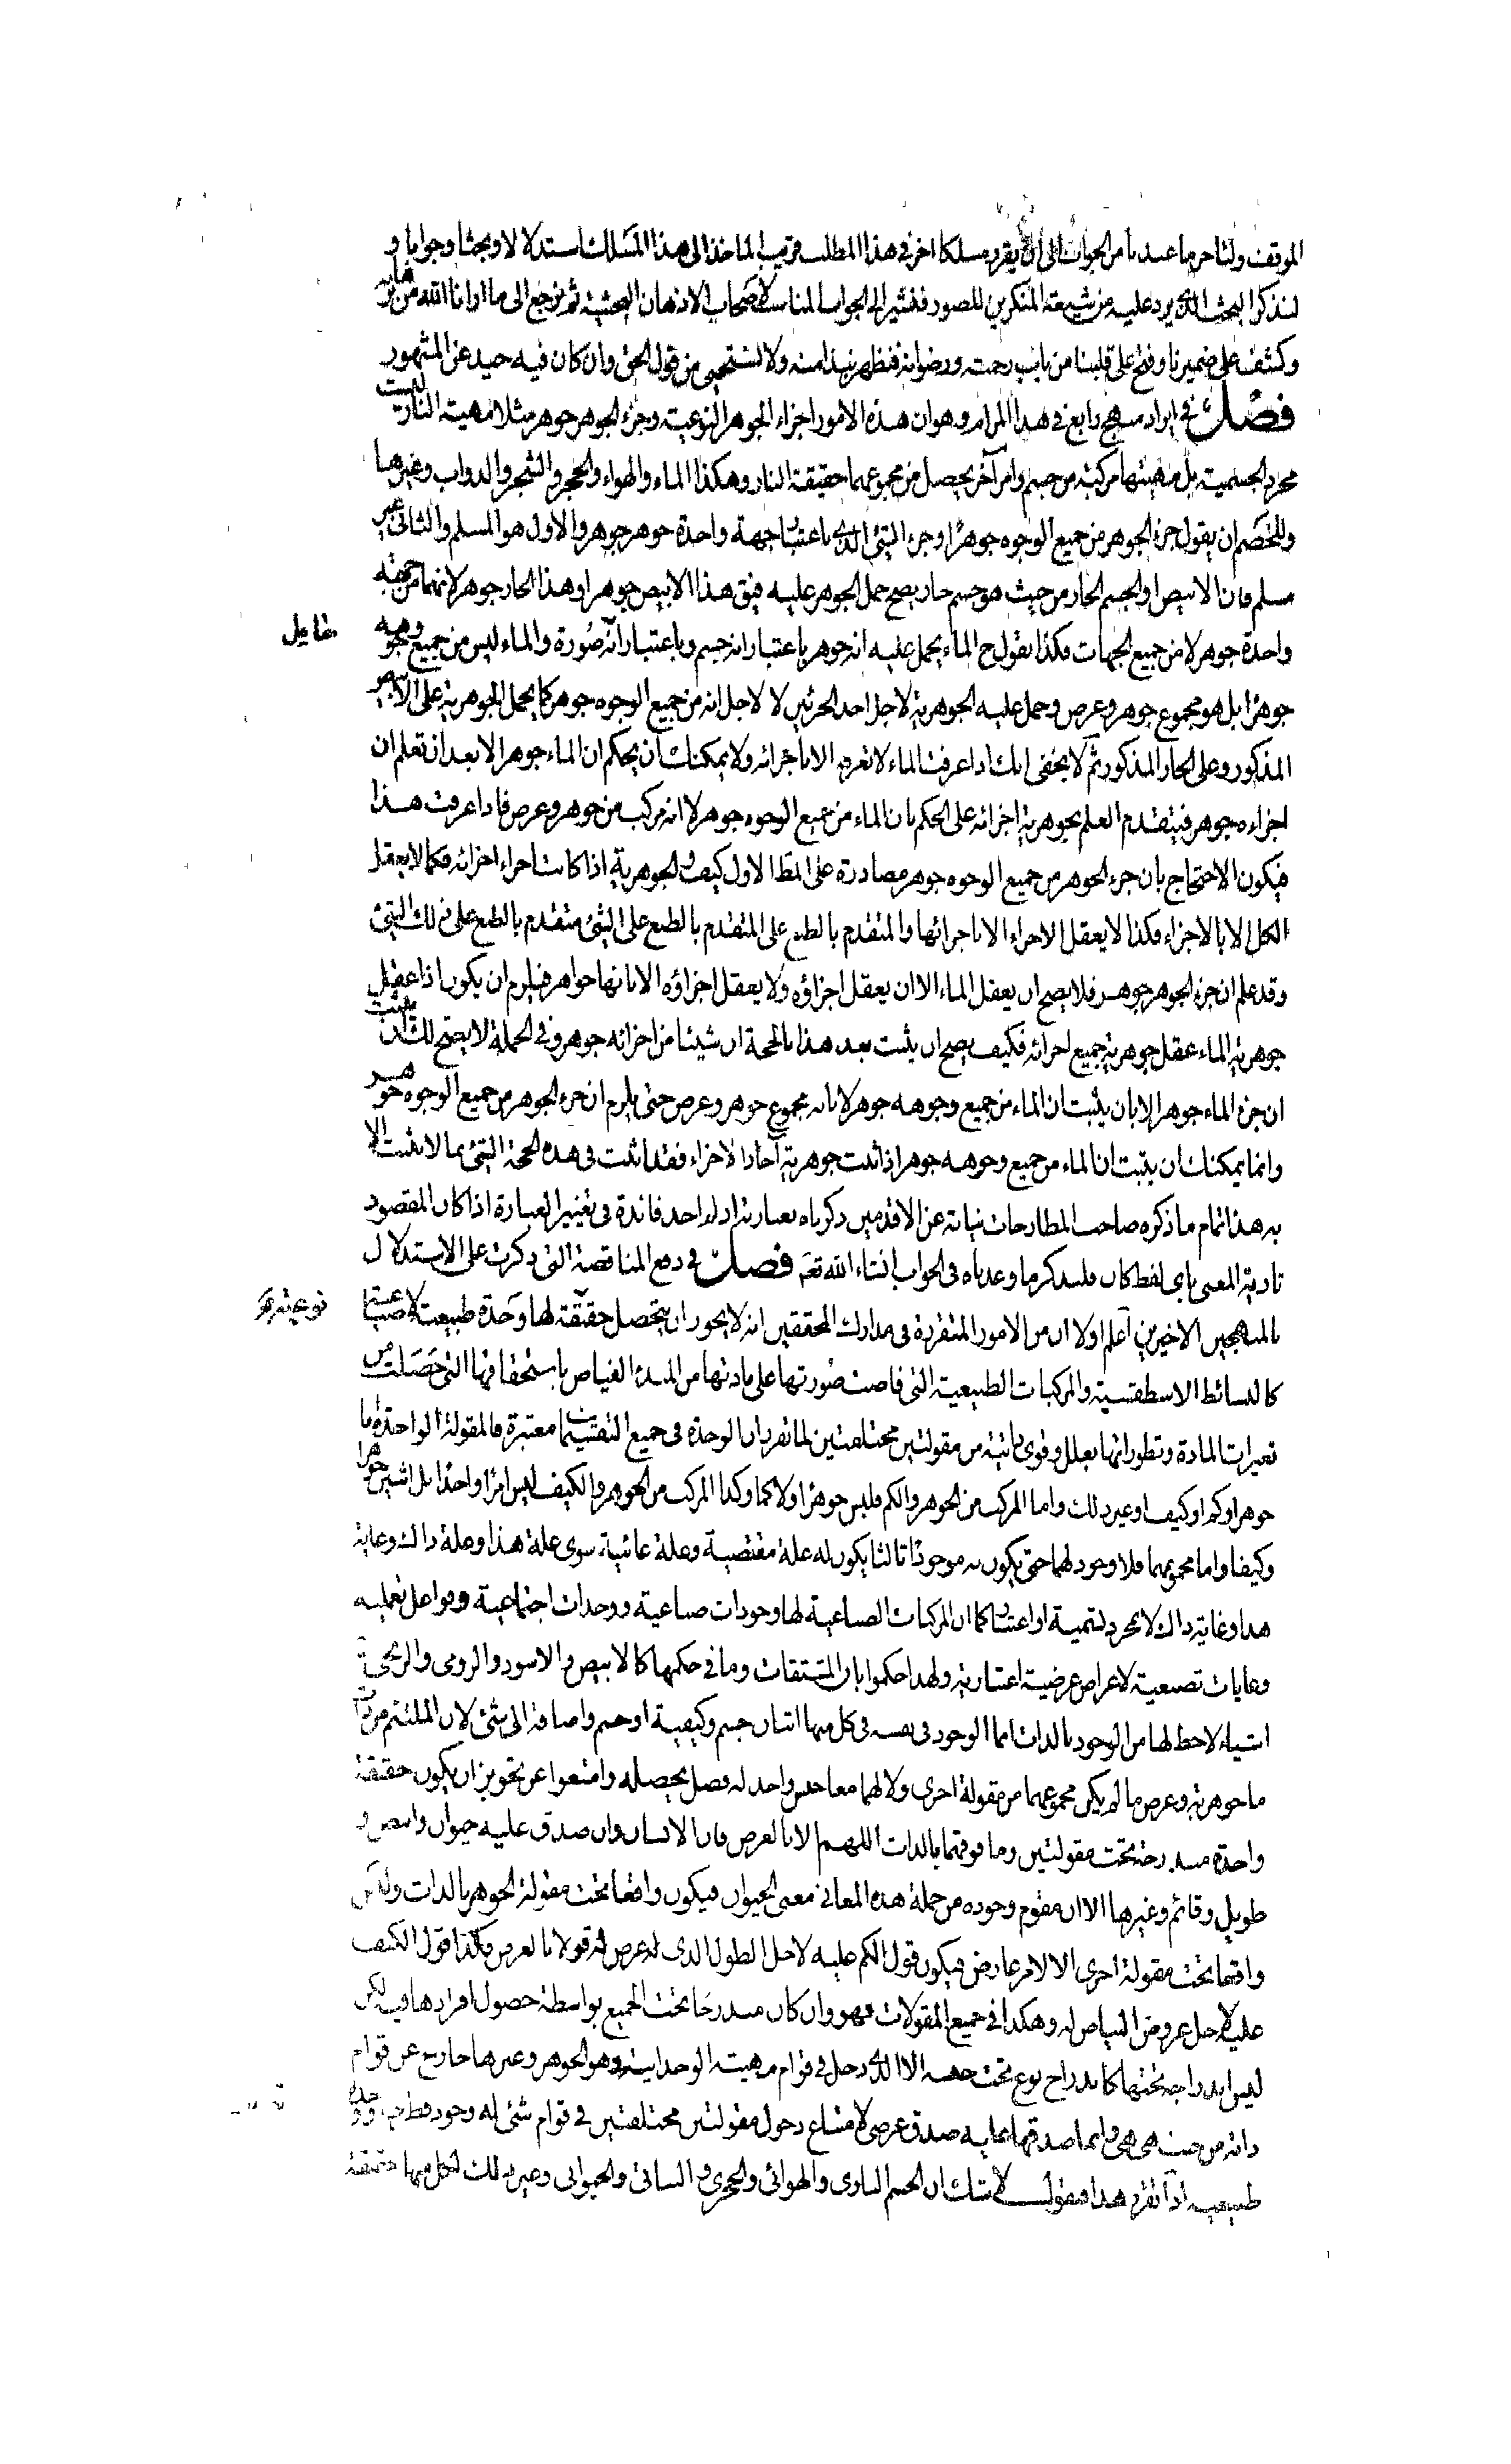 الموقف ولنأخر ما عندنا من الجواب الى ان يقرر مسلكا اخر فى هذا المطلب قريب الماخذ الى هذا المسلك استدلالا وبحثا وجوابا و
لنذكر البحث الذى يرد عليه من شيعة المنكرين للصور فنشير الى الجواب المناسب لاصحاب الاذهان البحثية ثم نرجع الى ما ارانا الله من برهانه
وكشف على ضميرنا وفتح على قلبنا من باب رحمته ورضوانه فنظهر نبذا منه ولا نستحيى من قول الحق وان كان فيه حيد عن المشهور
فصل فى ايراد منهج رابع فى هذا المرام وهو ان هذه الامور اجزاء الجوهر النوعية وجزء الجوهر جوهر مثلا مهية النار ليست
مجرد الجسمية بل مهيتها مركبة من جسم وامر آخر يحصل من مجموعهما حقيقة النار وهكذا الماء والهواء والحجر والشجر والدواب وغيرها
وللخصم ان يقول جزء الجوهر من جميع الوجوه جوهر او جزء الشئ الذى باعتبار جهة واحدة جوهر جوهر والاول هو المسلم والثانى غير
مسلم فان الابيض او الجسم الحار من حيث هو جسم حار يصح حمل الجوهر عليه فيق هذا الابيض جوهر او هذا الحار جوهر لانهما من جهة
واحدة جوهر لا من جميع الجهات فكذا نقول ح الماء يحمل عليه انه جوهر باعتبار انه جسم وباعتبار انه صورة والماء ليس من جميع وجوهه
جوهرا بل هو مجموع جوهر وعرض وحمل عليه الجوهرية لاجل احد الجزئين لا لاجل انه من جميع الوجوه جوهر كما يحمل الجوهرية على الابيض
المذكور وعلى الحار المذكور ثم لا يخفى انك اذا عرفت الماء لا تعرفه الا باجزائه ولا يمكنك ان يحكم ان الماء جوهر الا بعد ان تعلم ان
اجزاءه جوهر فيتقدم العلم بجوهرية اجزائه على الحكم بان الماء من جميع الوجوه جوهر لا انه مركب من جوهر وعرض فاذا عرفت هذا
فيكون الاحتجاج بان جزء الجوهر من جميع الوجوه جوهر مصادرة على المط الاول كيف والجوهرية اذا كانت اجراء اجزائه فكما لا يعقل
الكل الا بالاجزاء فكذا لا يعقل الاجزاء الا باجزائها والمتقدم بالطبع على المتقدم بالطبع على الشئ متقدم بالطبع على ذلك الشئ
وقد علم ان جزء الجوهر جوهر فلا يصح ان يعقل الماء الا ان يعقل اجزاؤه ولا يعقل اجزاؤه الا بانها جواهر فيلزم ان يكون اذا عقل
جوهرية الماء عقل جوهرية جميع اجزائه فكيف يصح ان يثبت بعد هذا بالحجة ان شيئا من اجزائه جوهر وفى الجملة لا يصح لك ان يثبت
ان جزء الماء جوهر الا بان يثبت ان الماء من جميع وجوهه جوهر لا بانه مجموع جوهر وعرض حتى يلزم ان جزء الجوهر من جميع الوجوه جوهر
وانما يمكنك ان يثبت ان الماء من جميع وجوهه جوهر اذا ثبت جوهرية آحاد الاجزاء فقد اثبت فى هذه الحجة الشئ بما لا يثبت الا
به هذا تمام ما ذكره صاحب المطارحات نيابة عن الاقدمين ذكرناه بعبارته اذ لم اجد فائدة فى تغيير العبارة اذا كان المقصود
تادية المعنى باى لفظ كان فلنذكر ما وعدناه فى الجواب انشاء الله تعم فصل فى دفع المناقضة التى ذكرت على الاستدلال
بالمنهجين الاخيرين اعلم اولا ان من الامور المتقررة فى مدارك المحققين انه لا يجوز ان يتحصل حقيقة لها وحدة طبيعية لا صناعية
كالبسائط الاسطقسية والمركبات الطبيعية التى فاضت صورتها على مادتها من المبدء الفياض باستحقاقها التى حصلت من
تغيرات المادة وتطوراتها بعلل وقوى ذاتية من مقولتين مختلفتين لما تقرر ان الوحدة فى جميع التقسيمات معتبرة فالمقولة الواحدة اما
جوهر او كم او كيف او غير ذلك واما المركب من الجوهر والكم فليس جوهرا ولا كما وكذا المركب من الجوهر والكيف ليس امرا واحدا بل اثنين جوهرا
وكيفا واما مجموعهما فلا وجود لهما حتى يكون به موجودا ثالثا يكون له علة مقتضية وعلة غائية سوى علة هذا وعلة ذاك وغاية
هذا وغاية ذاك لا بمجرد تسمية او اعتبار كما ان المركبات الصناعية لها وجودات صناعية ووحدات اجتماعية وفواعل تعملية
وغايات تصنعية لاعراض عرضية اعتبارية ولهذا حكموا بان المشتقات وما فى حكمها كالابيض والاسود والرومى والزنجى
اشياء لا حظ لها من الوجود بالذات انما الوجود فى نفسه فى كل منها اثنان جسم وكيفية او جسم واضافة الى شئ لان الملتئم من ذات
ما جوهرية وعرض ما لم يكن مجموعهما من مقولة اخرى ولا لهما معا جنس واحد له فصل يحصله وامتنعوا عن تجويز ان يكون حقيقة
واحدة مندرجة تحت مقولتين وما فوقهما بالذات اللهم الا بالعرض فان الانسان وان صدق عليه حيوان وابيض و
طويل وقائم وغيرها الا ان مقوم وجوده من جملة هذه المعانى معنى الحيوان فيكون واقعا تحت مقولة الجوهر بالذات وليس
واقعا تحت مقولة اخرى الا لامر عارض فيكون قول الكم عليه لاجل الطول الذى له عرض له قولا بالعرض وكذا قول الكيف
عليه لاجل عروض البياض له وهكذا فى جميع المقولات فهو وان كان مندرجا تحت الجميع بواسطة حصول افرادها فيه لكن
ليس اندراجه تحتها كاندراج نوع تحت جنسه الا الذى دخل فى قوام مهيته الوحدانية وهو الجوهر وغيرها خارج عن قوام
ذاته من حيث هى هى وانما صدقها عليه صدق عرضى لامتناع دخول مقولتين مختلفتين فى قوام شئ له وجود
طبيعية اذا تقرر هذا فنقول لا شك ان الجسم النارى والهوائى والحجرى والنباتى والحيوانى وغير ذلك لكل منها حقيقة